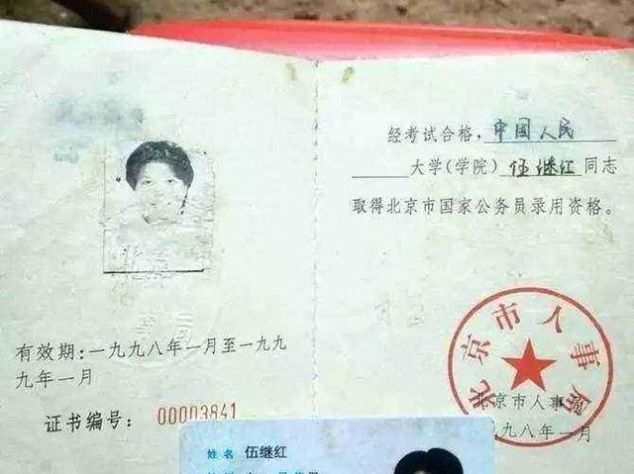 经考试合格，中国人民
大学(学院)伍继红同志
取得北京市国家公务员录用资格。
有效期：一九九八年一月至一九九
九年一月
证书编号： 00003841
北京市人事局
北京市人事局
九九八年一月
姓名 伍继红